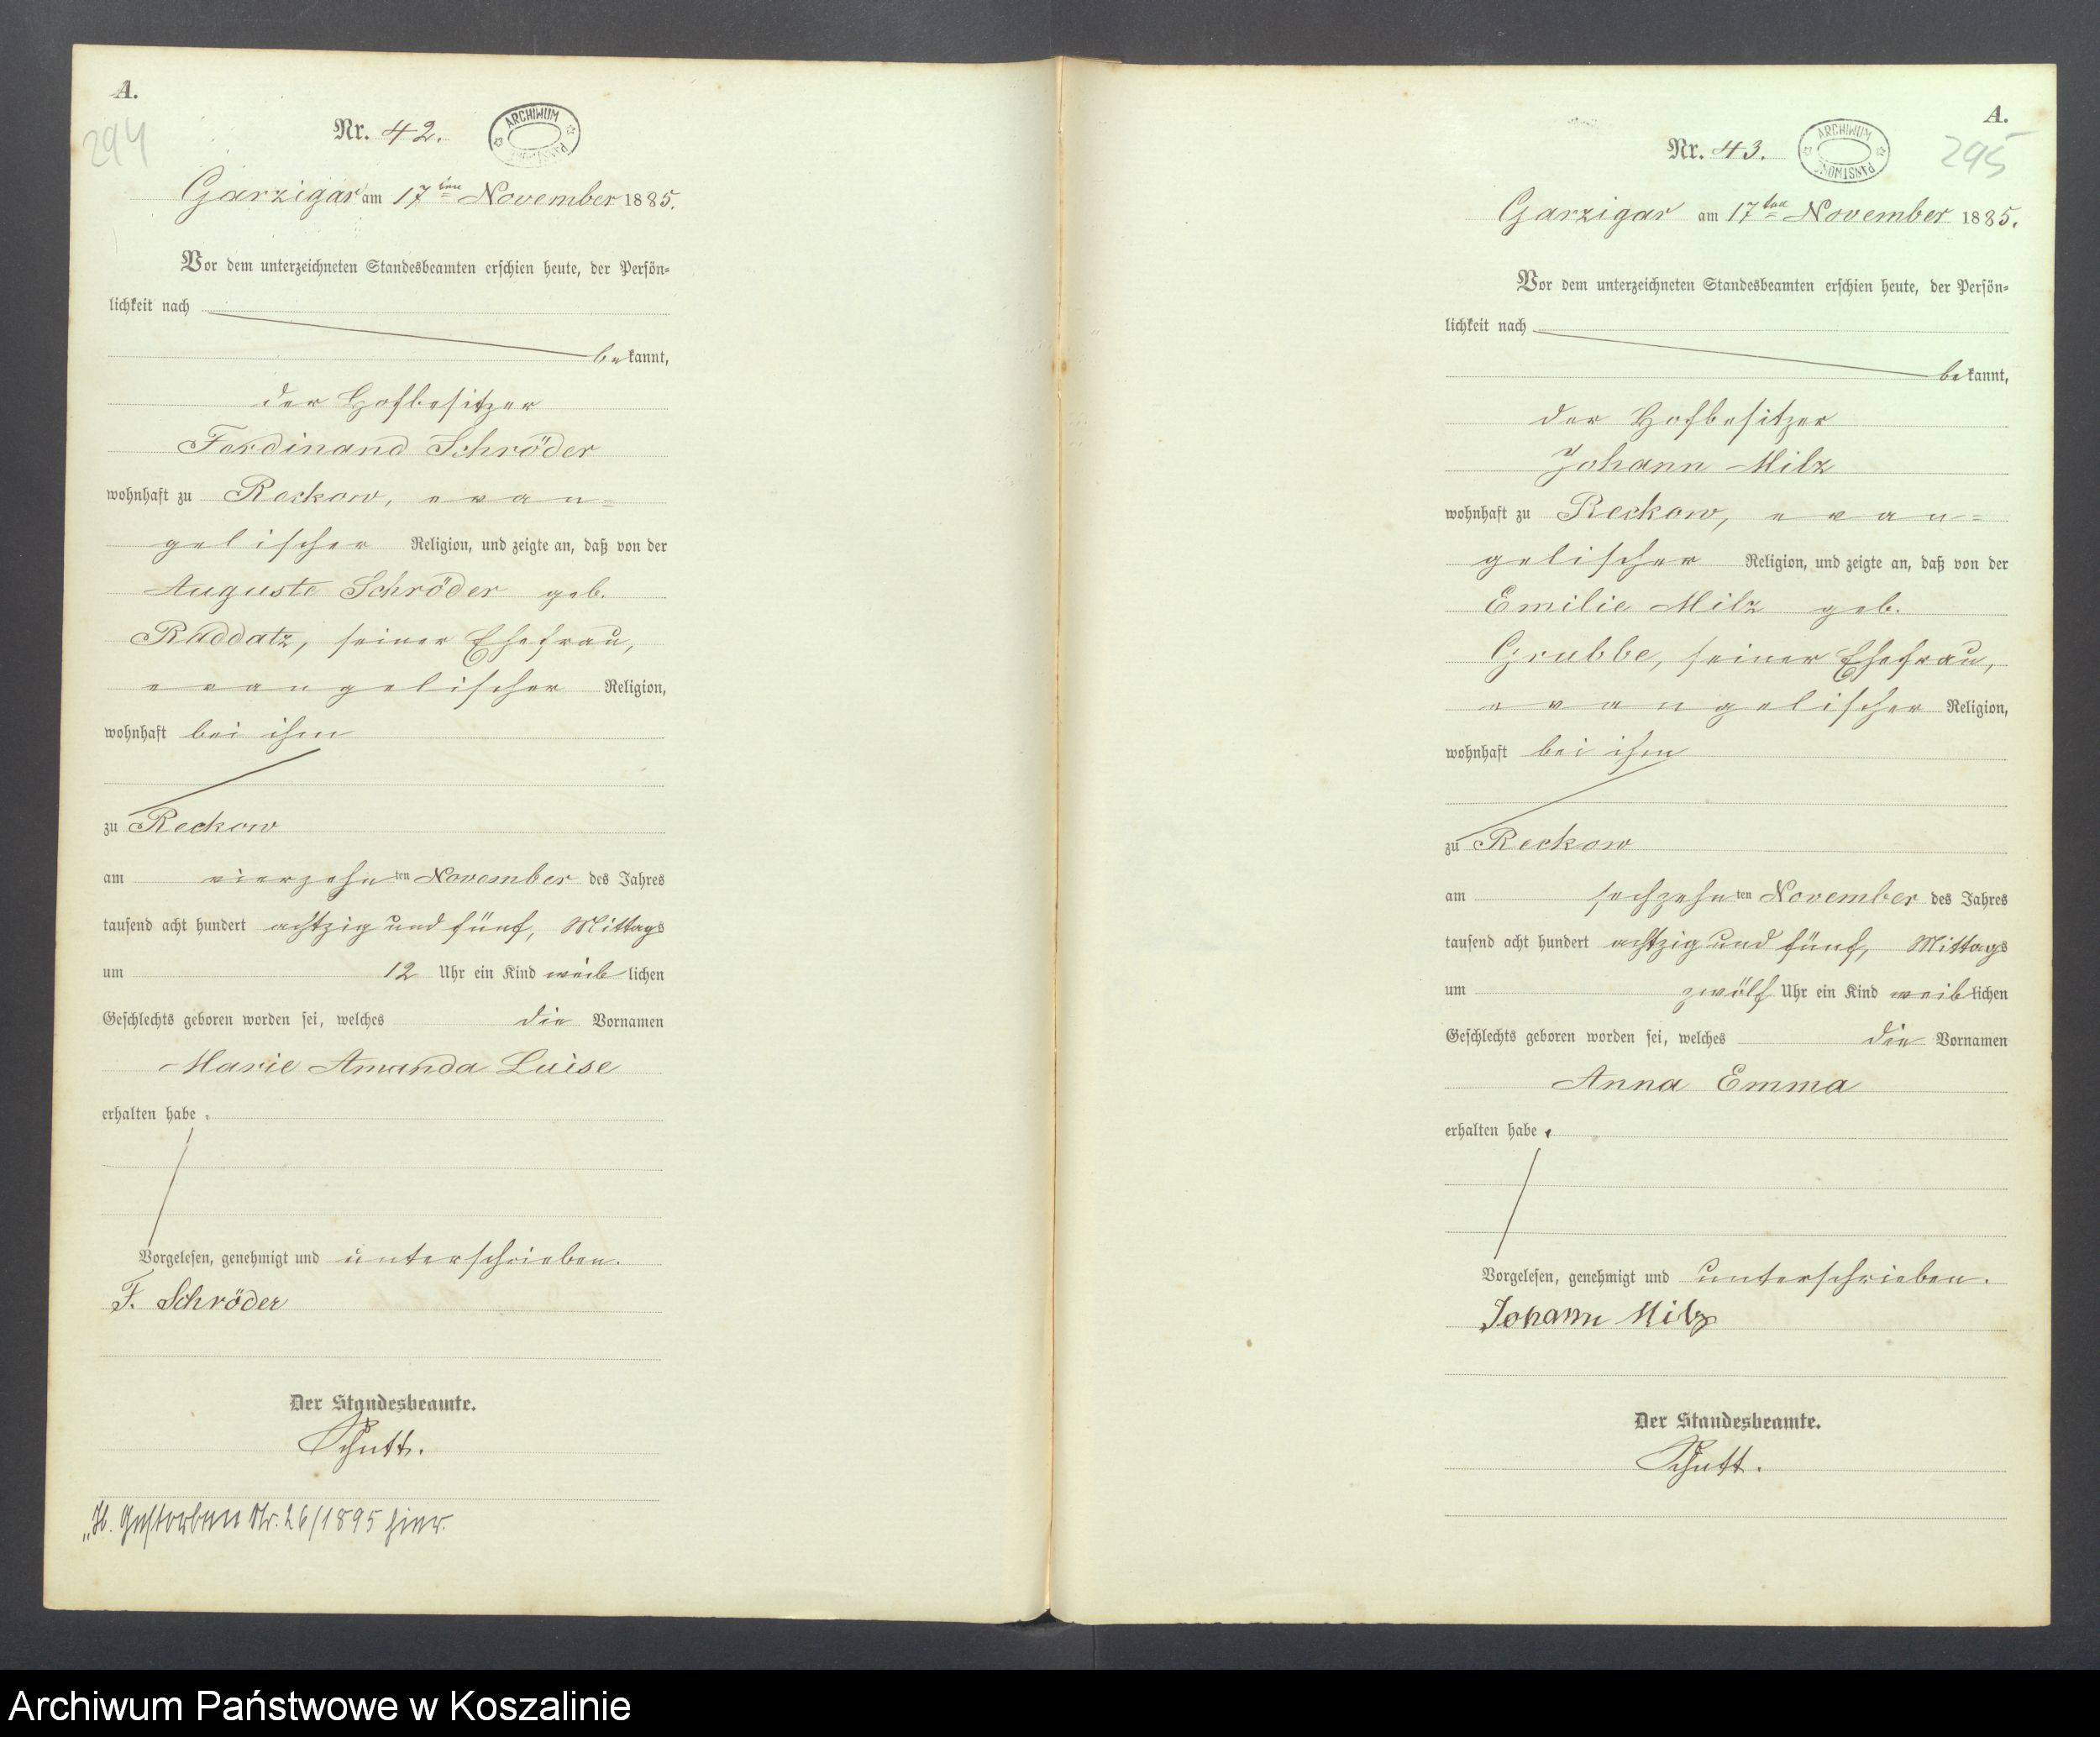 A.
294
Nr. 42.
ARCHIWUM PAŃSTWOWE
Garzigar am 17ten November 1885.
Vor dem unterzeichneten Standesbeamten erschien heute, der Persön-
lichkeit nach
bekannt,
der Hofbesitzer
Ferdinand Schröder
wohnhaft zu Reckow, evan-
gelischer Religion, und zeigte an, daß von der
Auguste Schröder geb.
Raddatz, seiner Ehefrau,
evangelischer Religion,
wohnhaft bei ihm
zu Reckow
am vierzehnten November des Jahres
tausend acht hundert achtzig und fünf, Mittags
um 12 Uhr ein Kind weiblichen
Geschlechts geboren worden sei, welches die Vornamen
Marie Amanda Luise
erhalten habe.
Vorgelesen, genehmigt und unterschrieben.
F. Schröder
Der Standesbeamte.
Schutt.
Gestorben Nr. 26/1895 hier.
A.
295
Nr. 43.
ARCHIWUM PAŃSTWOWE
Garzigar am 17ten November 1885.
Vor dem unterzeichneten Standesbeamten erschien heute, der Persön-
lichkeit nach
bekannt,
der Hofbesitzer
Johann Milz
wohnhaft zu Reckow, evan-
gelischer Religion, und zeigte an, daß von der
Emilie Milz geb.
Grubbe, seiner Ehefrau,
evangelischer Religion,
wohnhaft bei ihm
zu Reckow
am sechzehnten November des Jahres
tausend acht hundert achtzig und fünf, Mittags
um zwölf Uhr ein Kind weiblichen
Geschlechts geboren worden sei, welches die Vornamen
Anna Emma
erhalten habe.
Vorgelesen, genehmigt und unterschrieben.
Johann Milz
Der Standesbeamte.
Schutt.
Archiwum Państwowe w Koszalinie